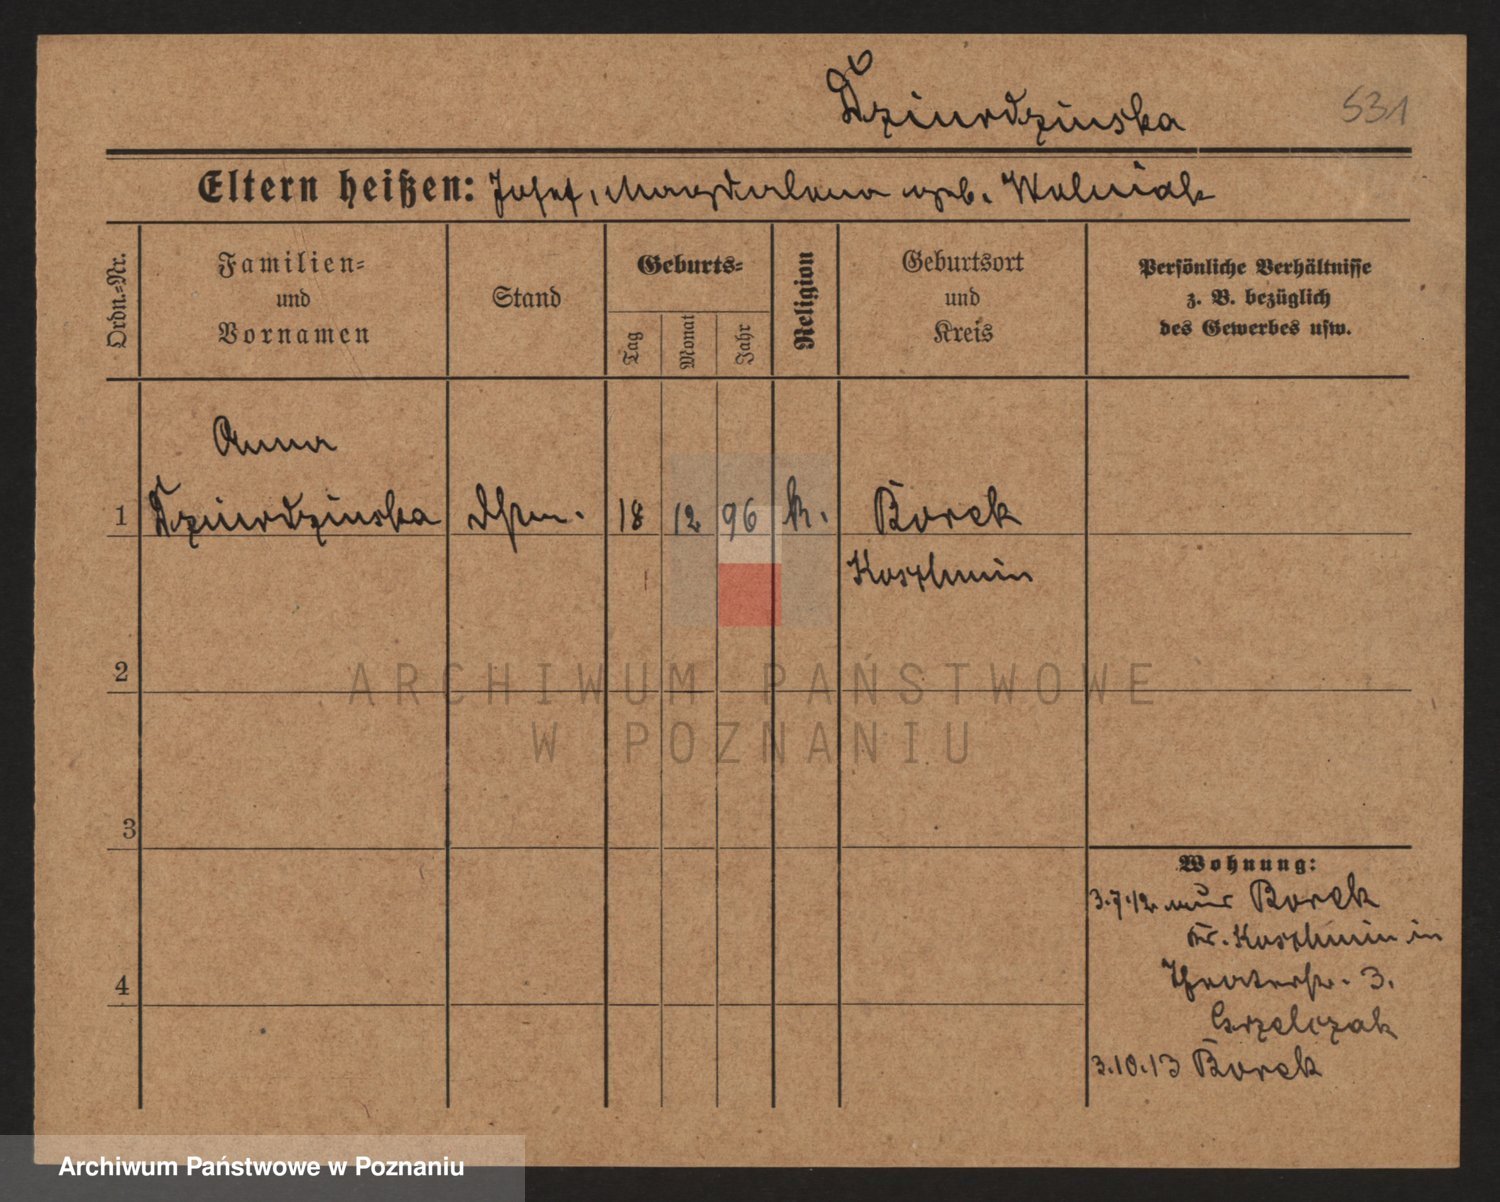 Dziurdzinska
531
Eltern heißen: Josef, Magdalena geb. Wolniak
Ordn.=Nr.
Familien=
und
Vornamen
Stand
Geburts=
Tag
Monat
Jahr
Religion
Geburtsort
und
Kreis
Persönliche Verhältnisse
z. B. bezüglich
des Gewerbes usw.
Anna
1 Dziurdzinska 18 12 96 k. Borek
Koschmin
2
ARCHIWUM PAŃSTWOWE
W POZNANIU
3
Wohnung:
3.7.12 aus Borek
Kr. Koschmin in
4
Theaterstr. 3.
Grzelczak
3.10.13 Borek
Archiwum Państwowe w Poznaniu